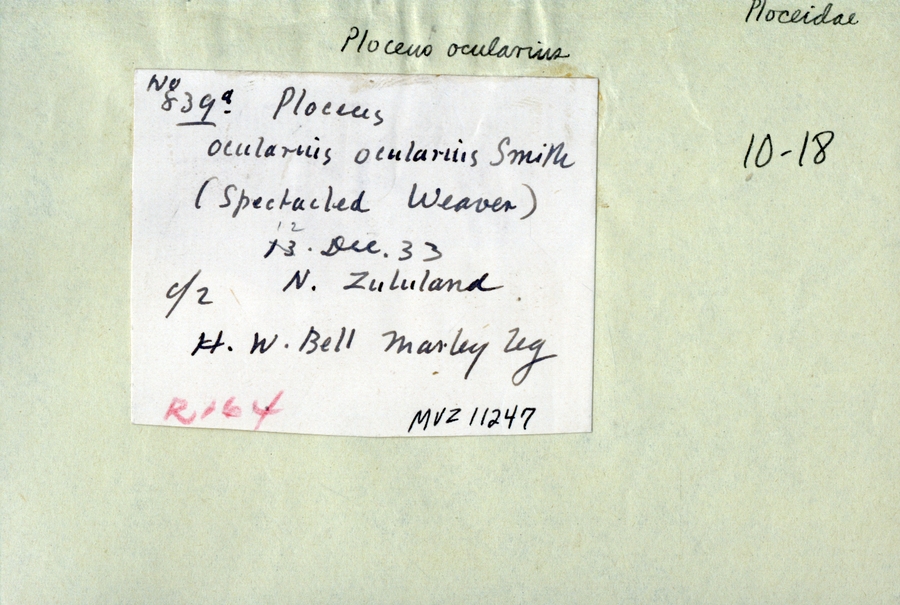 Ploceidae
Ploceus ocularius
10-18
No
839a Ploceus
ocularius ocularius Smith
(Spectacled Weaver)
12
13. Dec. 33
c/2 N. Zululand
H. W. Bell Marley leg
R164
MVZ 11247